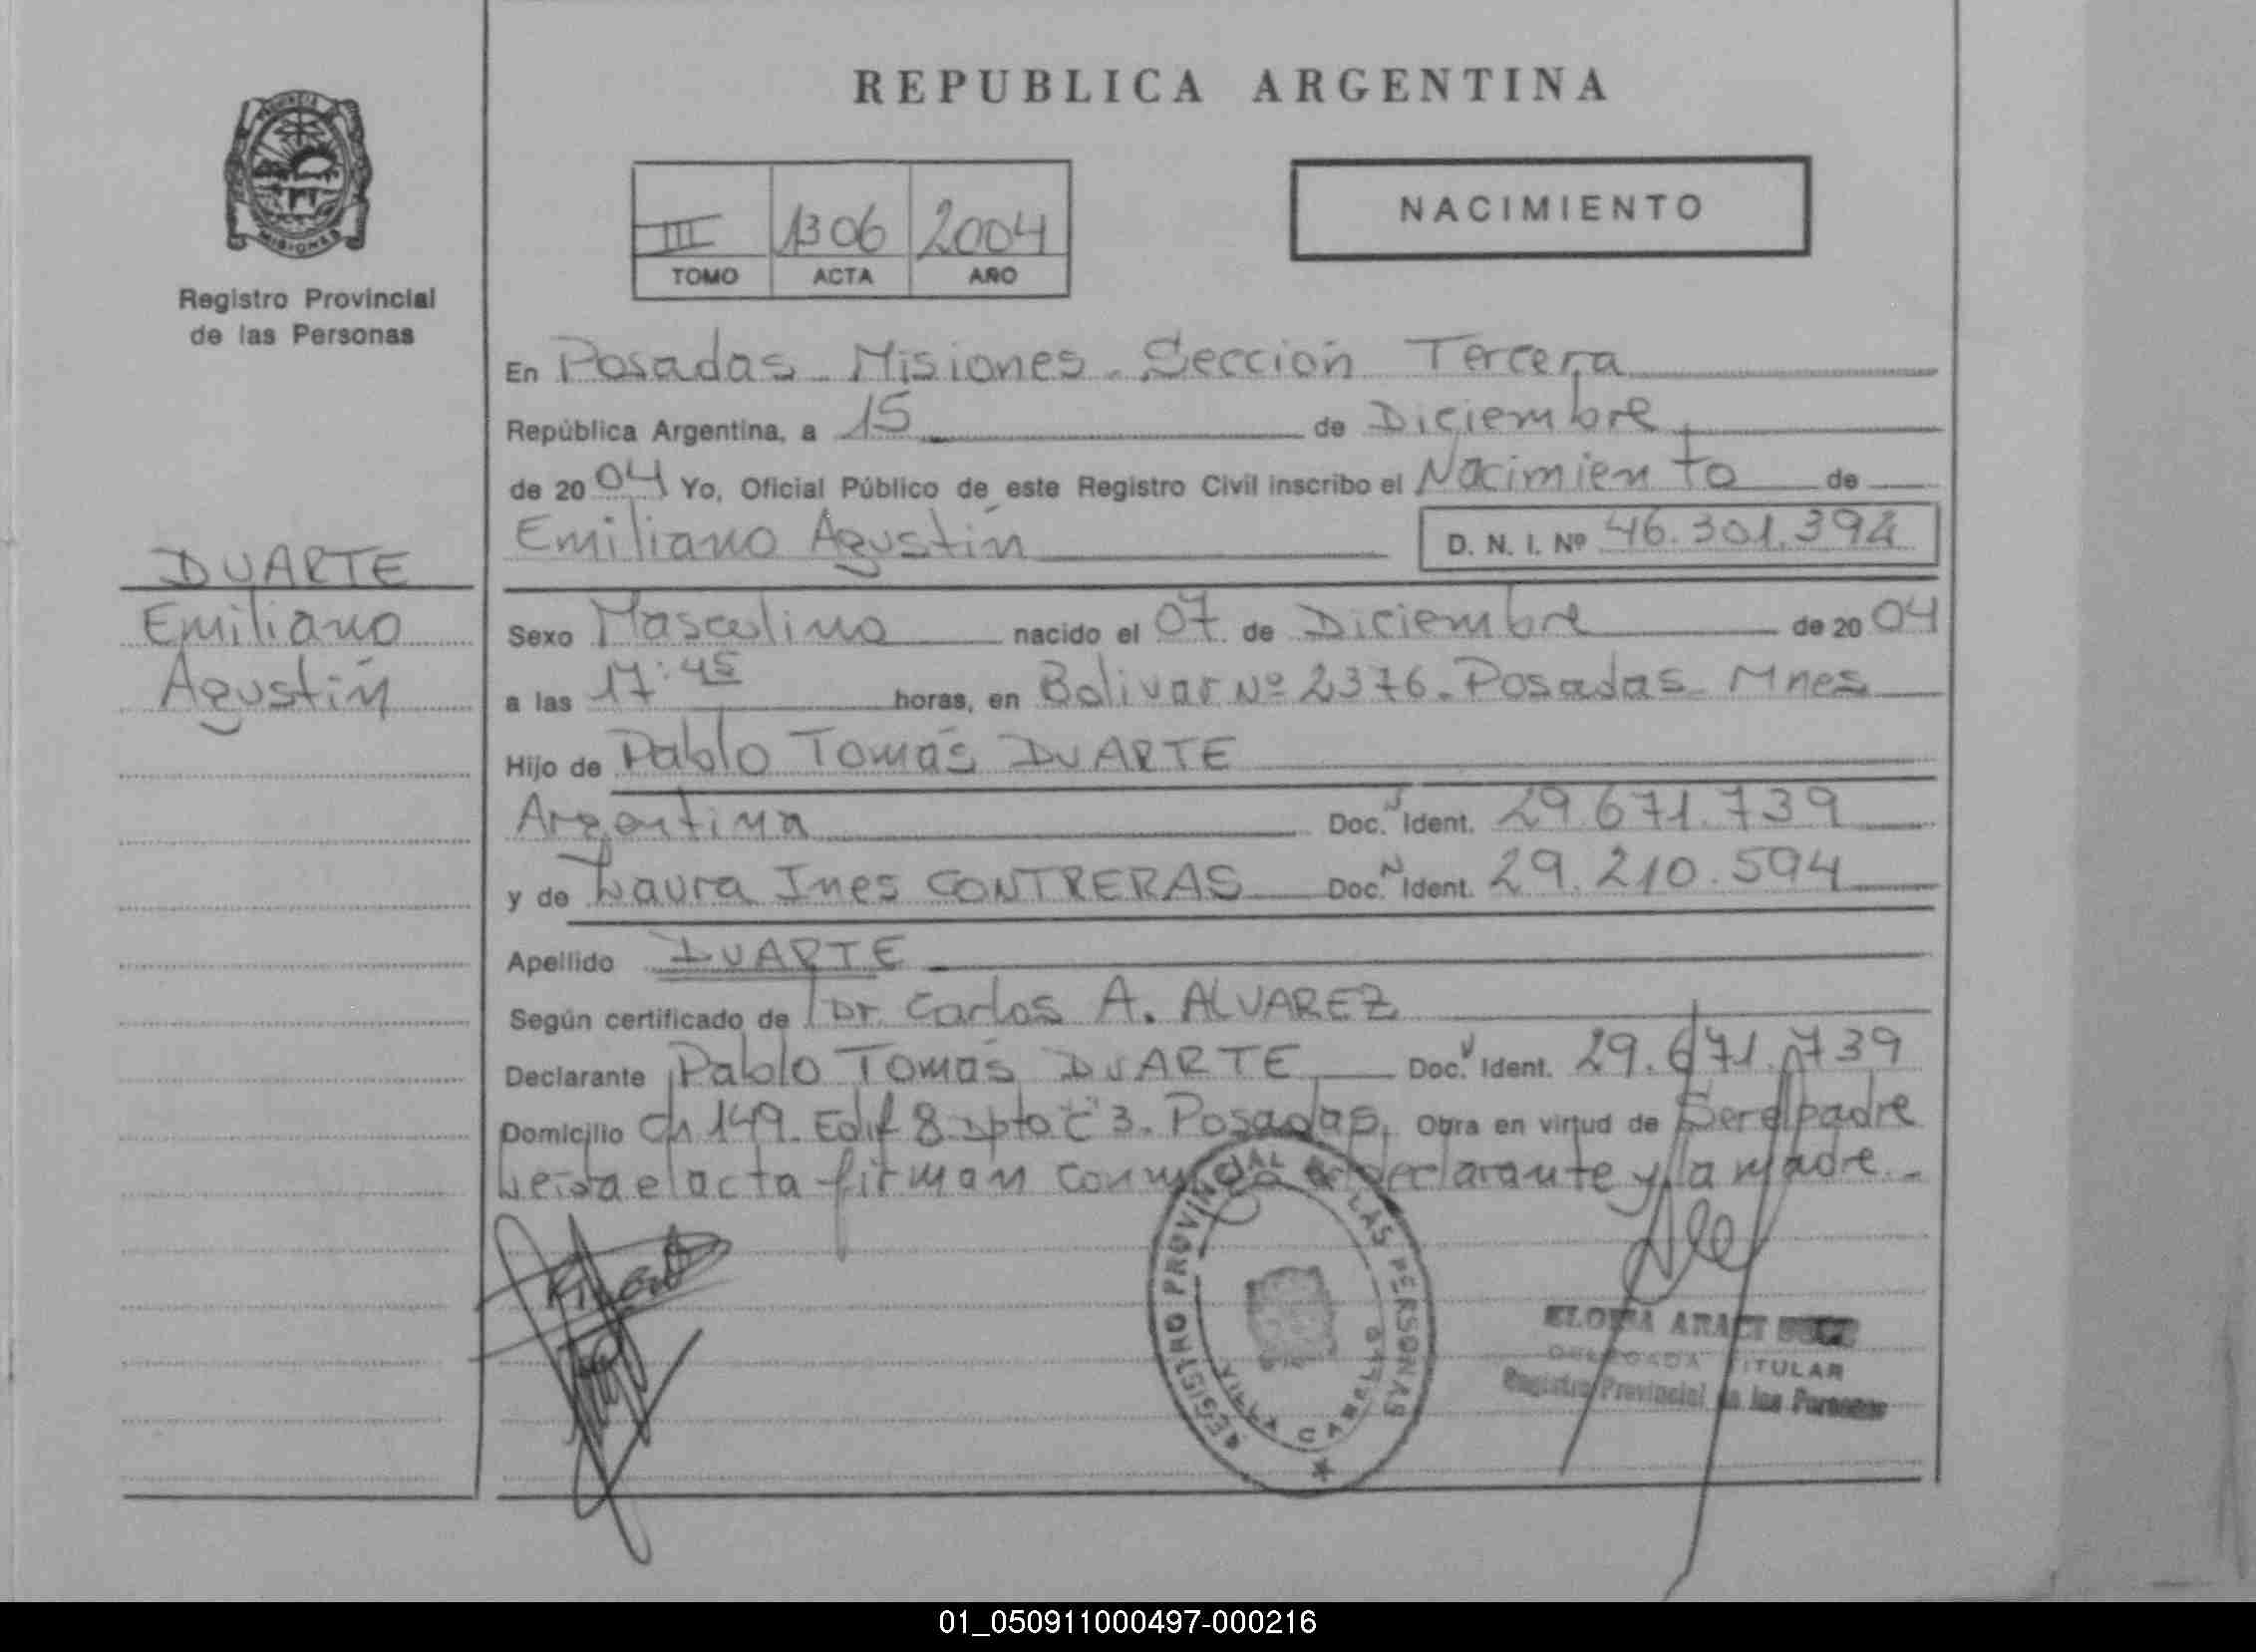 REPUBLICA ARGENTINA
MISIONES
Registro Provincial
de las Personas
III 1306 2004
TOMO ACTA AÑO
NACIMIENTO
En Posadas - Misiones - Sección Tercera
República Argentina, a 15 de Diciembre
de 2004 Yo, Oficial Público de este Registro Civil inscribo el Nacimiento de
Emiliano Agustín D. N. I. Nº 46.301.394
DUARTE
Emiliano
Agustín
Sexo Masculino nacido el 07 de Diciembre de 2004
a las 17:45 horas, en Bolivar Nº 2376. Posadas - Mnes
Hijo de Pablo Tomás DUARTE
Argentina Doc. Ident. 29.671.739
y de Laura Ines CONTRERAS Doc. Ident. 29.210.594
Apellido DUARTE
Según certificado de Dr. Carlos A. ALVAREZ
Declarante Pablo Tomás DUARTE Doc. Ident. 29.671.739
Domicilio Ch 149. Edif 8 Dpto "C" 3. Posadas, Obra en virtud de Ser el padre
Leida el acta firman conmigo el declarante y la madre.-
REGISTRO PROVINCIAL DE LAS PERSONAS
VILLA CABELLO
TITULAR
Registro Provincial de las Personas
01_050911000497-000216